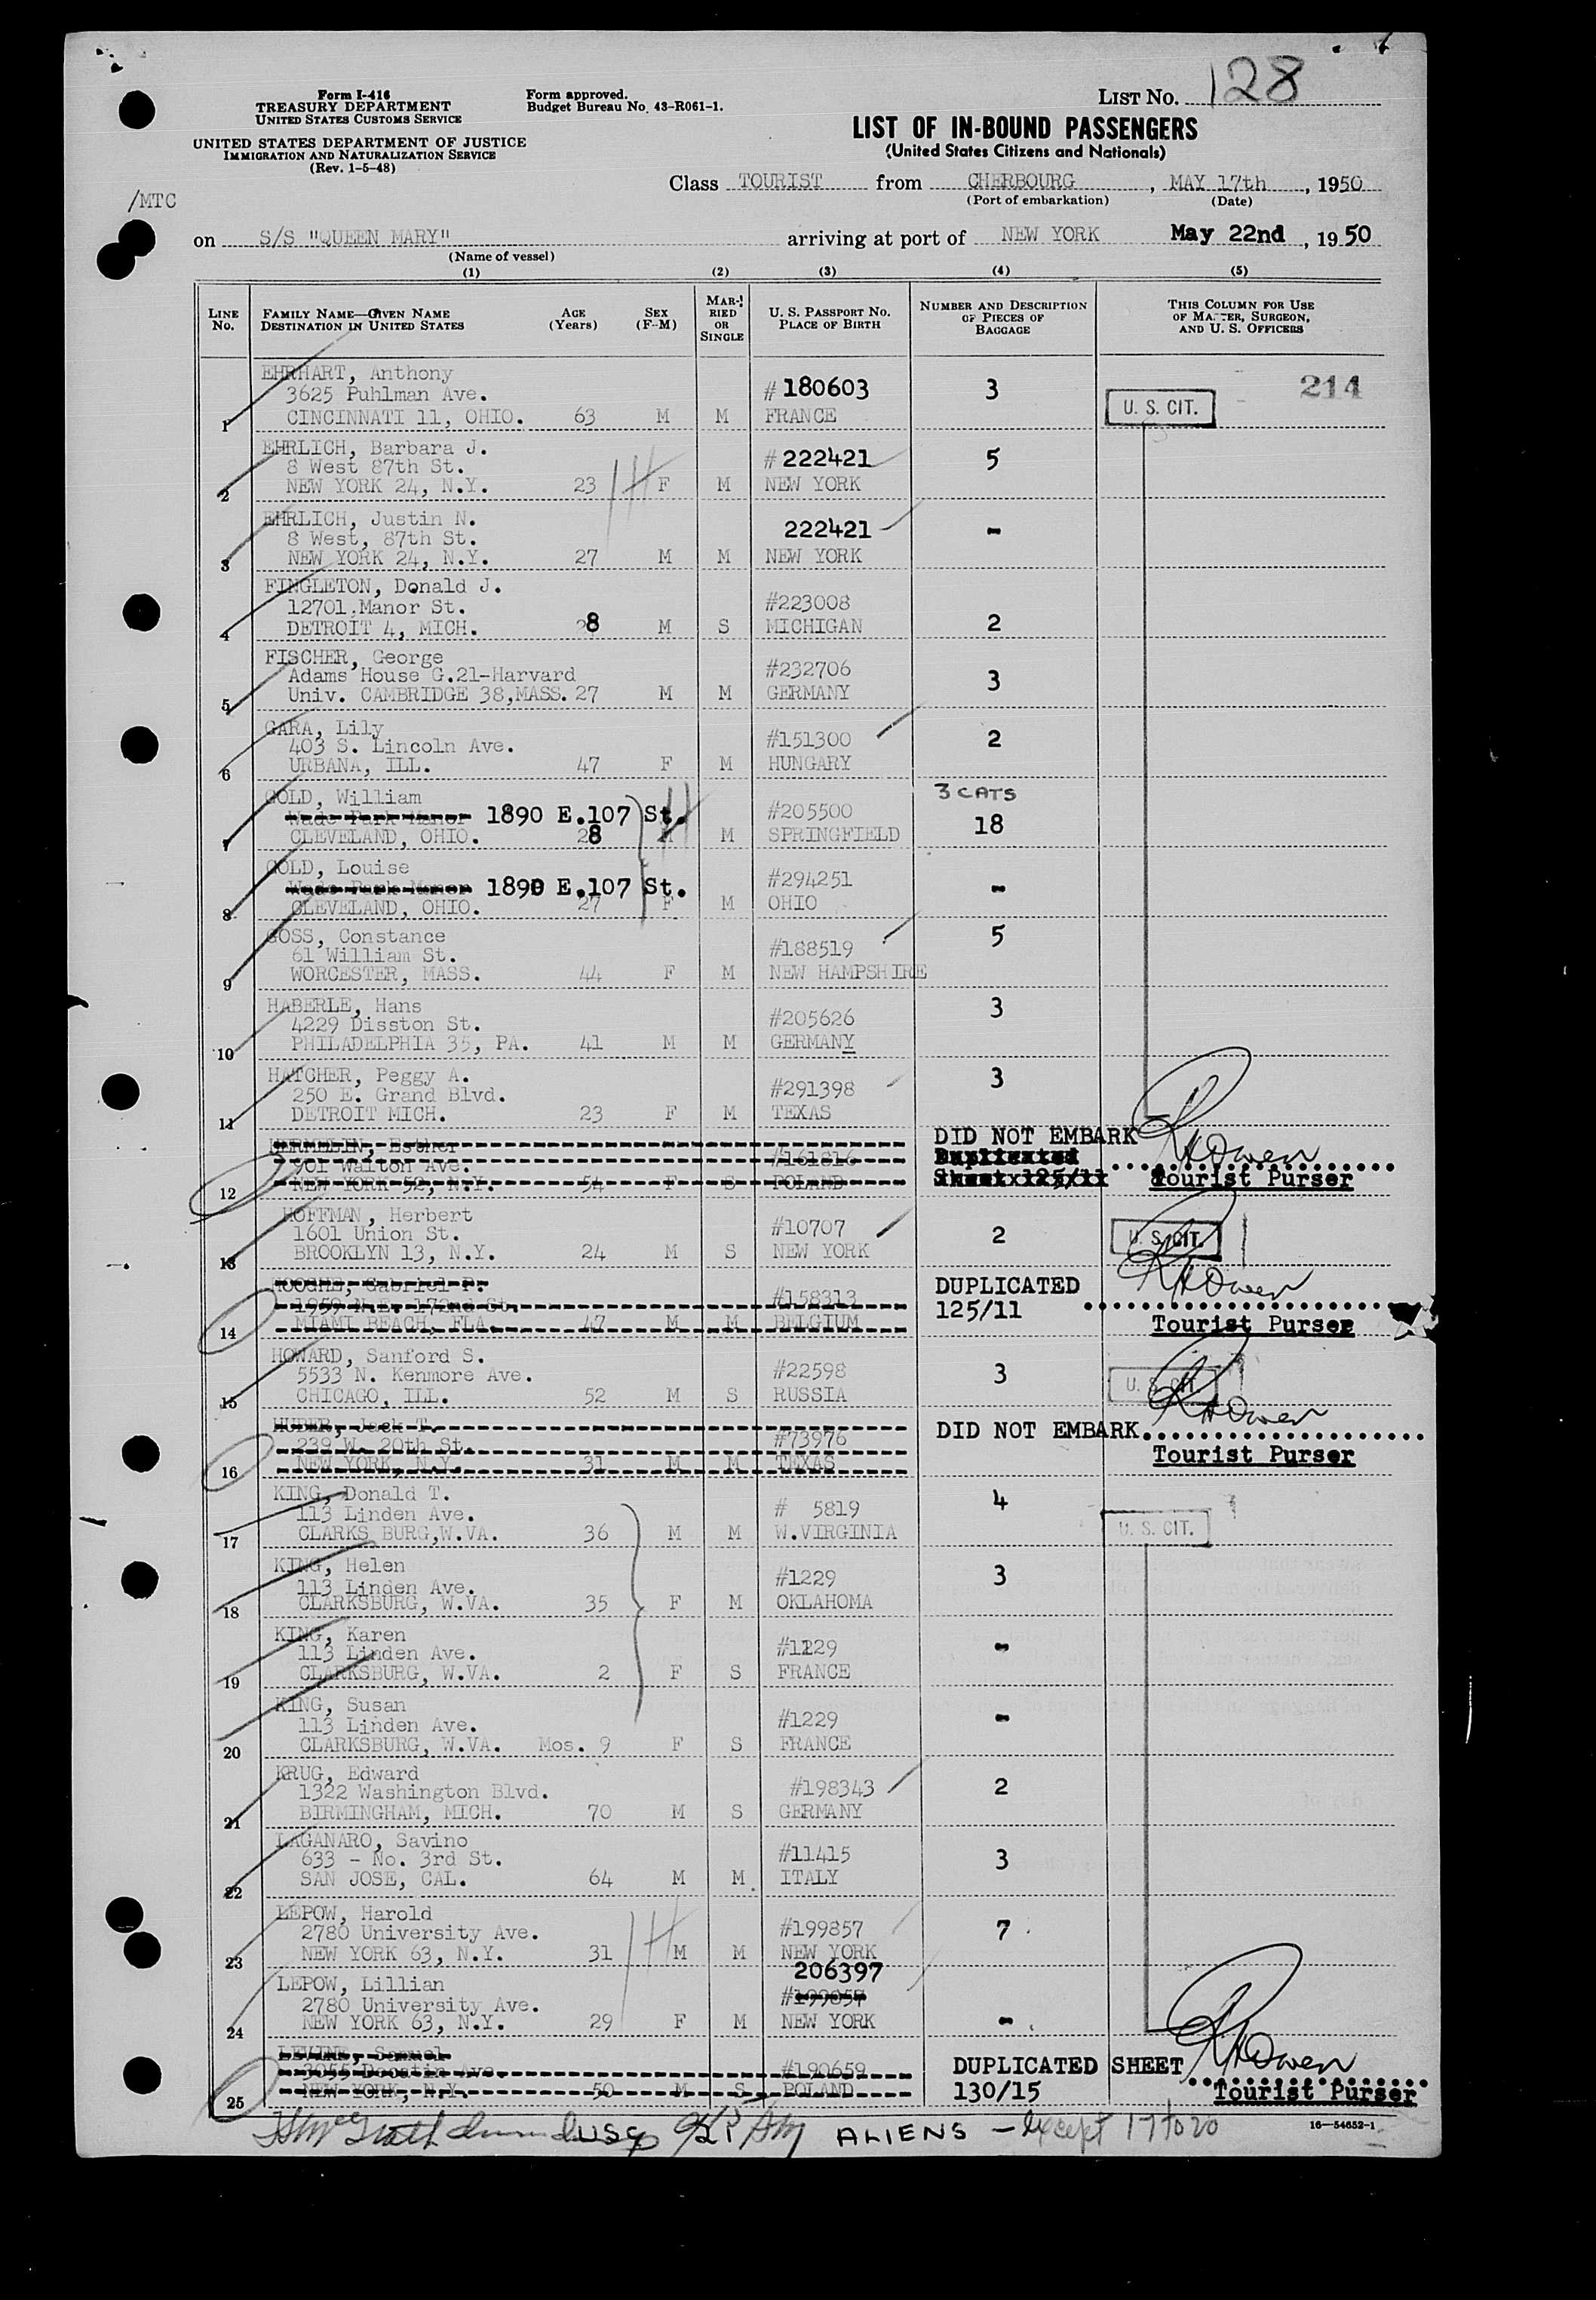 Form I-416
TREASURY DEPARTMENT
UNITED STATES CUSTOMS SERVICE
UNITED STATES DEPARTMENT OF JUSTICE
IMMIGRATION AND NATURALIZATION SERVICE
(Rev. 1-5-48)
Form approved.
Budget Bureau No. 43-R061-1.
LIST NO. 128
LIST OF IN-BOUND PASSENGERS
(United States Citizens and Nationals)
/MTC
Class TOURIST from CHERBOURG, MAY 17th, 1950
(Port of embarkation) (Date)
on S/S "QUEEN MARY" arriving at port of NEW YORK May 22nd, 1950
(Name of vessel)
(1) (2) (3) (4) (5)
LINE No. FAMILY NAME—GIVEN NAME DESTINATION IN UNITED STATES AGE (Years) SEX (F-M) MARRIED OR SINGLE U. S. PASSPORT NO. PLACE OF BIRTH NUMBER AND DESCRIPTION OF PIECES OF BAGGAGE THIS COLUMN FOR USE OF MASTER, SURGEON, AND U. S. OFFICERS
EHRHART, Anthony
3625 Puhlman Ave. # 180603 3 U. S. CIT. 214
1 CINCINNATI 11, OHIO. 63 M M FRANCE
EHRLICH, Barbara J.
8 West 87th St. # 222421 5
2 NEW YORK 24, N.Y. 23 F M NEW YORK
EHRLICH, Justin N.
8 West, 87th St. 222421 -
3 NEW YORK 24, N.Y. 27 M M NEW YORK
FINGLETON, Donald J.
12701 Manor St. #223008
4 DETROIT 4, MICH. 28 M S MICHIGAN 2
FISCHER, George
Adams House G.21-Harvard #232706 3
5 Univ. CAMBRIDGE 38,MASS. 27 M M GERMANY
GARA, Lily
403 S. Lincoln Ave. #151300 2
6 URBANA, ILL. 47 F M HUNGARY
GOLD, William 3 CATS
Wade Park Manor 1890 E.107 St. #205500 18
7 CLEVELAND, OHIO. 28 M M SPRINGFIELD
GOLD, Louise
Wade Park Manor 1890 E.107 St. #294251 -
8 CLEVELAND, OHIO. 27 F M OHIO
GOSS, Constance
61 William St. #188519 5
9 WORCESTER, MASS. 44 F M NEW HAMPSHIRE
HABERLE, Hans
4229 Disston St. #205626 3
10 PHILADELPHIA 35, PA. 41 M M GERMANY
HATCHER, Peggy A.
250 E. Grand Blvd. #291398 3
11 DETROIT MICH. 23 F M TEXAS
HERMELIN, Esther DID NOT EMBARK
901 Walton Ave. #161816 Duplicated RHOwen
12 NEW YORK 52, N.Y. 54 F S POLAND Sheet 125/11 Tourist Purser
HOFFMAN, Herbert
1601 Union St. #10707 2 U. S. CIT.
13 BROOKLYN 13, N.Y. 24 M S NEW YORK
HOOGHE, Gabriel P. DUPLICATED RHOwen
1959 N.E. 172nd St. #158313 125/11
14 MIAMI BEACH, FLA. 47 M M BELGIUM Tourist Purser
HOWARD, Sanford S.
5533 N. Kenmore Ave. #22598 3 U. S. CIT.
15 CHICAGO, ILL. 52 M S RUSSIA
HUDER, Jack T. DID NOT EMBARK RHOwen
239 W. 20th St. #73976 Tourist Purser
16 NEW YORK, N.Y. 31 M M TEXAS
KING, Donald T.
113 Linden Ave. # 5819 4 U. S. CIT.
17 CLARKS BURG,W.VA. 36 M M W.VIRGINIA
KING, Helen
113 Linden Ave. #1229 3
18 CLARKSBURG, W.VA. 35 F M OKLAHOMA
KING, Karen
113 Linden Ave. #1229 -
19 CLARKSBURG, W.VA. 2 F S FRANCE
KING, Susan
113 Linden Ave. #1229 -
20 CLARKSBURG, W.VA. Mos. 9 F S FRANCE
KRUG, Edward
1322 Washington Blvd. #198343 2
21 BIRMINGHAM, MICH. 70 M S GERMANY
LAGANARO, Savino
633 - No. 3rd St. #11415 3
22 SAN JOSE, CAL. 64 M M ITALY
LEPOW, Harold
2780 University Ave. #199857 7
23 NEW YORK 63, N.Y. 31 M M NEW YORK
LEPOW, Lillian 206397
2780 University Ave. #199857
24 NEW YORK 63, N.Y. 29 F M NEW YORK -
LEVINE, Samuel DUPLICATED SHEET RHOwen
3055 Decatin Ave. #190659 130/15 Tourist Purser
25 NEW YORK, N.Y. 50 M S POLAND
ALIENS - Except 17 to 20
16—54652-1